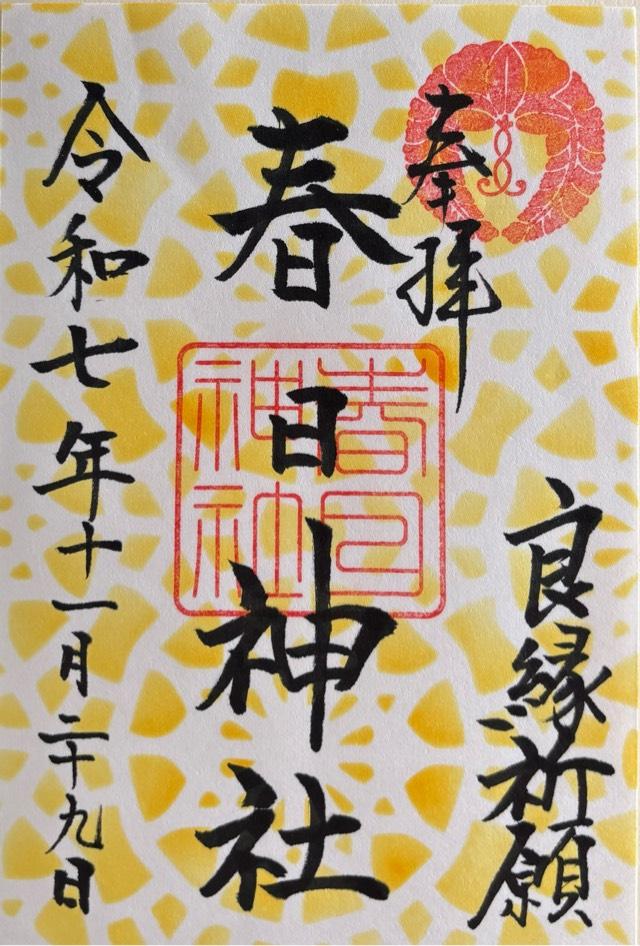 奉拝
良縁祈願
春日神社
春日神社
令和七年十一月二十九日